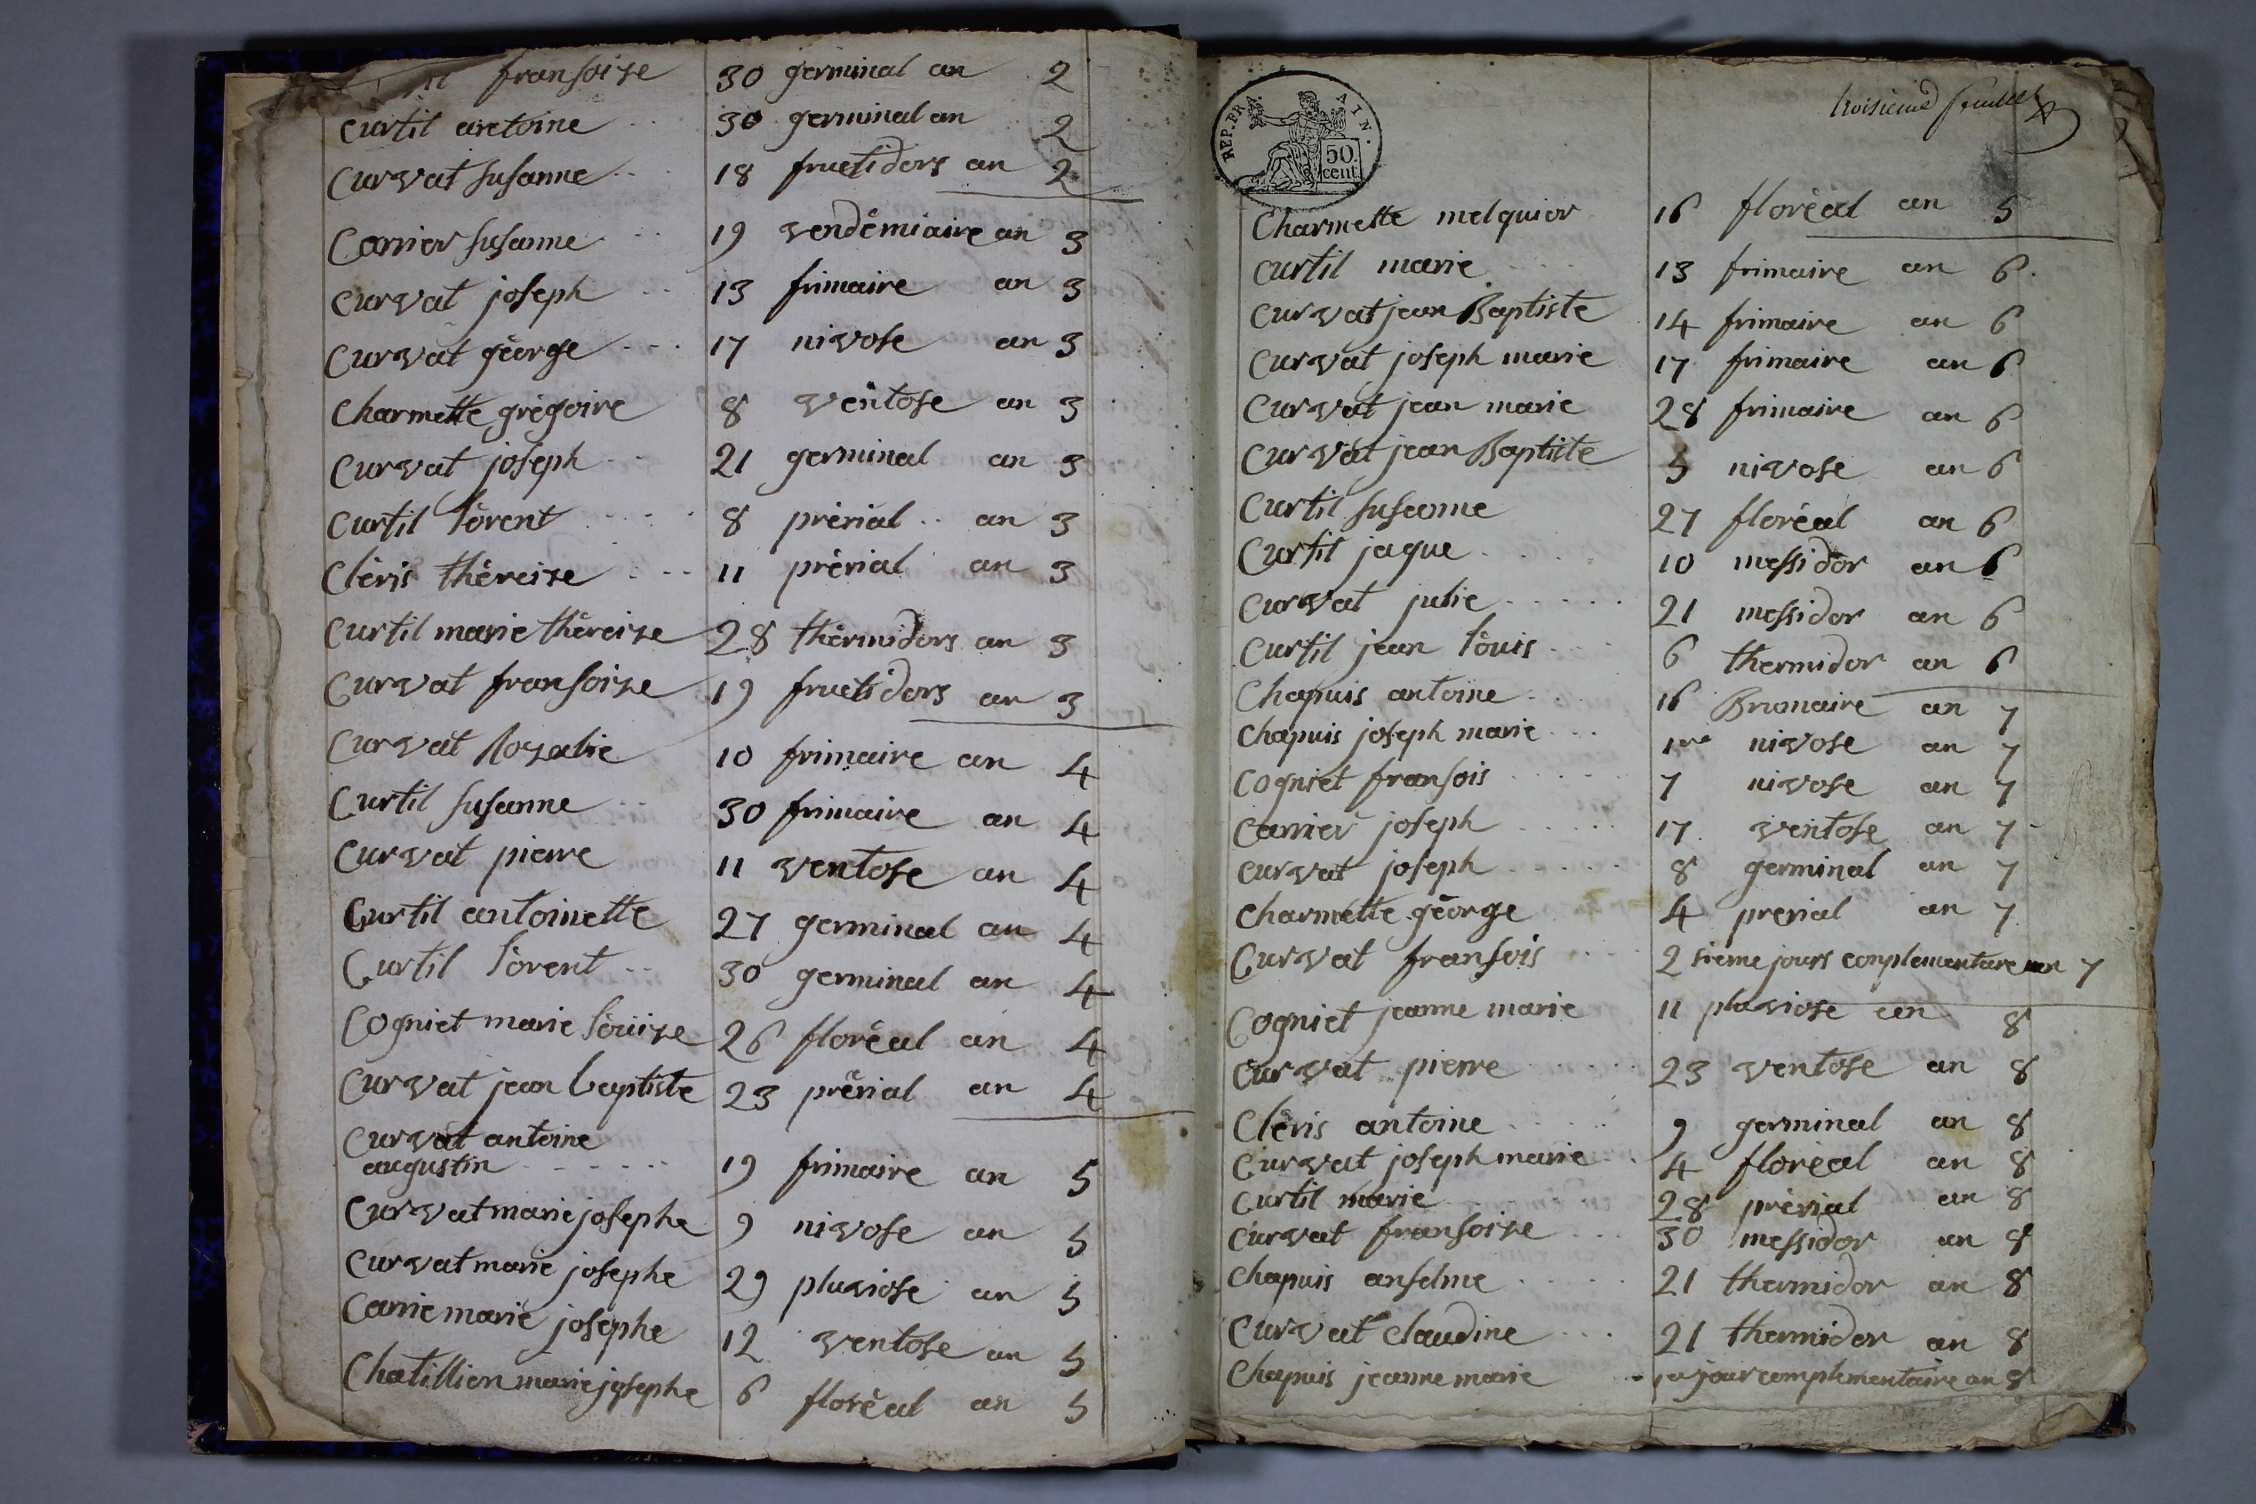 fransoise 30 germinal an 2
Curtil antoine 30 germinal an 2
Curvat susanne 18 fructidors an 2
Carrier susanne 19 vendémiaire an 3
Curvat joseph 13 frimaire an 3
Curvat géorge 17 nivose an 3
Charmette grégoire 8 ventose an 3
Curvat joseph 21 germinal an 3
Curtil lorent 8 prérial an 3
Cléris théreise 11 prérial an 3
Curtil marie théreise 28 thérmidors an 3
Curvat fransoise 19 fructidors an 3
Curvat Rozalie 10 frimaire an 4
Curtil susanne 30 frimaire an 4
Curvat pierre 11 ventose an 4
Curtil antoinette 27 germinal an 4
Curtil lorent 30 germinal an 4
Cogniet marie louise 26 floréal an 4
Curvat jean baptiste 23 prérial an 4
Curvat antoine
augustin 19 frimaire an 5
Curvat marie josephe 9 nivose an 5
Curvat marie josephe 29 pluviose an 5
Carrie marie josephe 12 ventose an 5
Chatillion marie josephe 6 floréal an 5
REP. FRA. AIN.
50.
cent.
troisieme feuillet
Charmette melquior 16 floréal an 5
Curtil marie 13 frimaire an 6
Curvat jean Baptiste 14 frimaire an 6
Curvat joseph marie 17 frimaire an 6
Curvat jean marie 28 frimaire an 6
Curvat jean Baptiste 5 nivose an 6
Curtil susanne 27 floréal an 6
Curtil jaque 10 messidor an 6
Curvat julie 21 messidor an 6
Curtil jean louis 6 thermidor an 6
Chapuis antoine 16 Brumaire an 7
Chapuis joseph marie 1re nivose an 7
Cogniet fransois 7 nivose an 7
Carrier joseph 17 ventose an 7
Curvat joseph 8 germinal an 7
Charmette géorge 4 prerial an 7
Curvat fransois 2 sieme jours conplementare an 7
Cogniet jeanne marie 11 pluviose an 8
Curvat pierre 23 ventose an 8
Cléris antoine 9 germinal an 8
Curvat joseph marie 4 floréal an 8
Curtil marie 28 prérial an 8
Curvat fransoise 30 messidor an 8
Chapuis anselme 21 thermidor an 8
Curvat claudine 21 thermidor an 8
Chapuis jeanne marie jour complementaire an 8